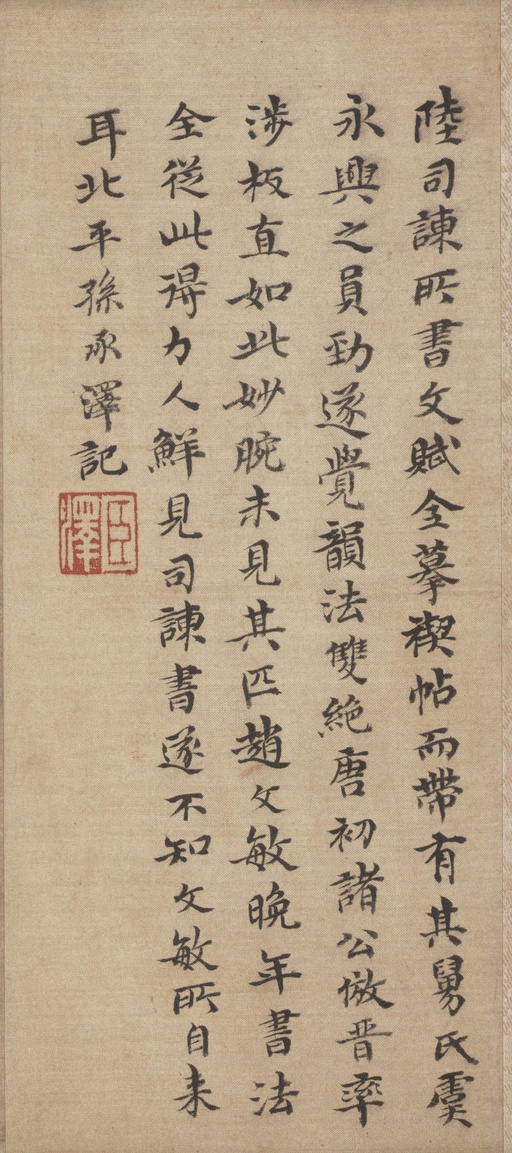 陸司諫所書文賦全摹禊帖而帶有其舅氏虞
永興之員勁遂覺韻法雙絶唐初諸公倣晋率
涉板直如此妙腕未見其匹趙文敏晚年書法
全從此得力人鮮見司諫書遂不知文敏所自来
耳北平孫承澤記
臣澤